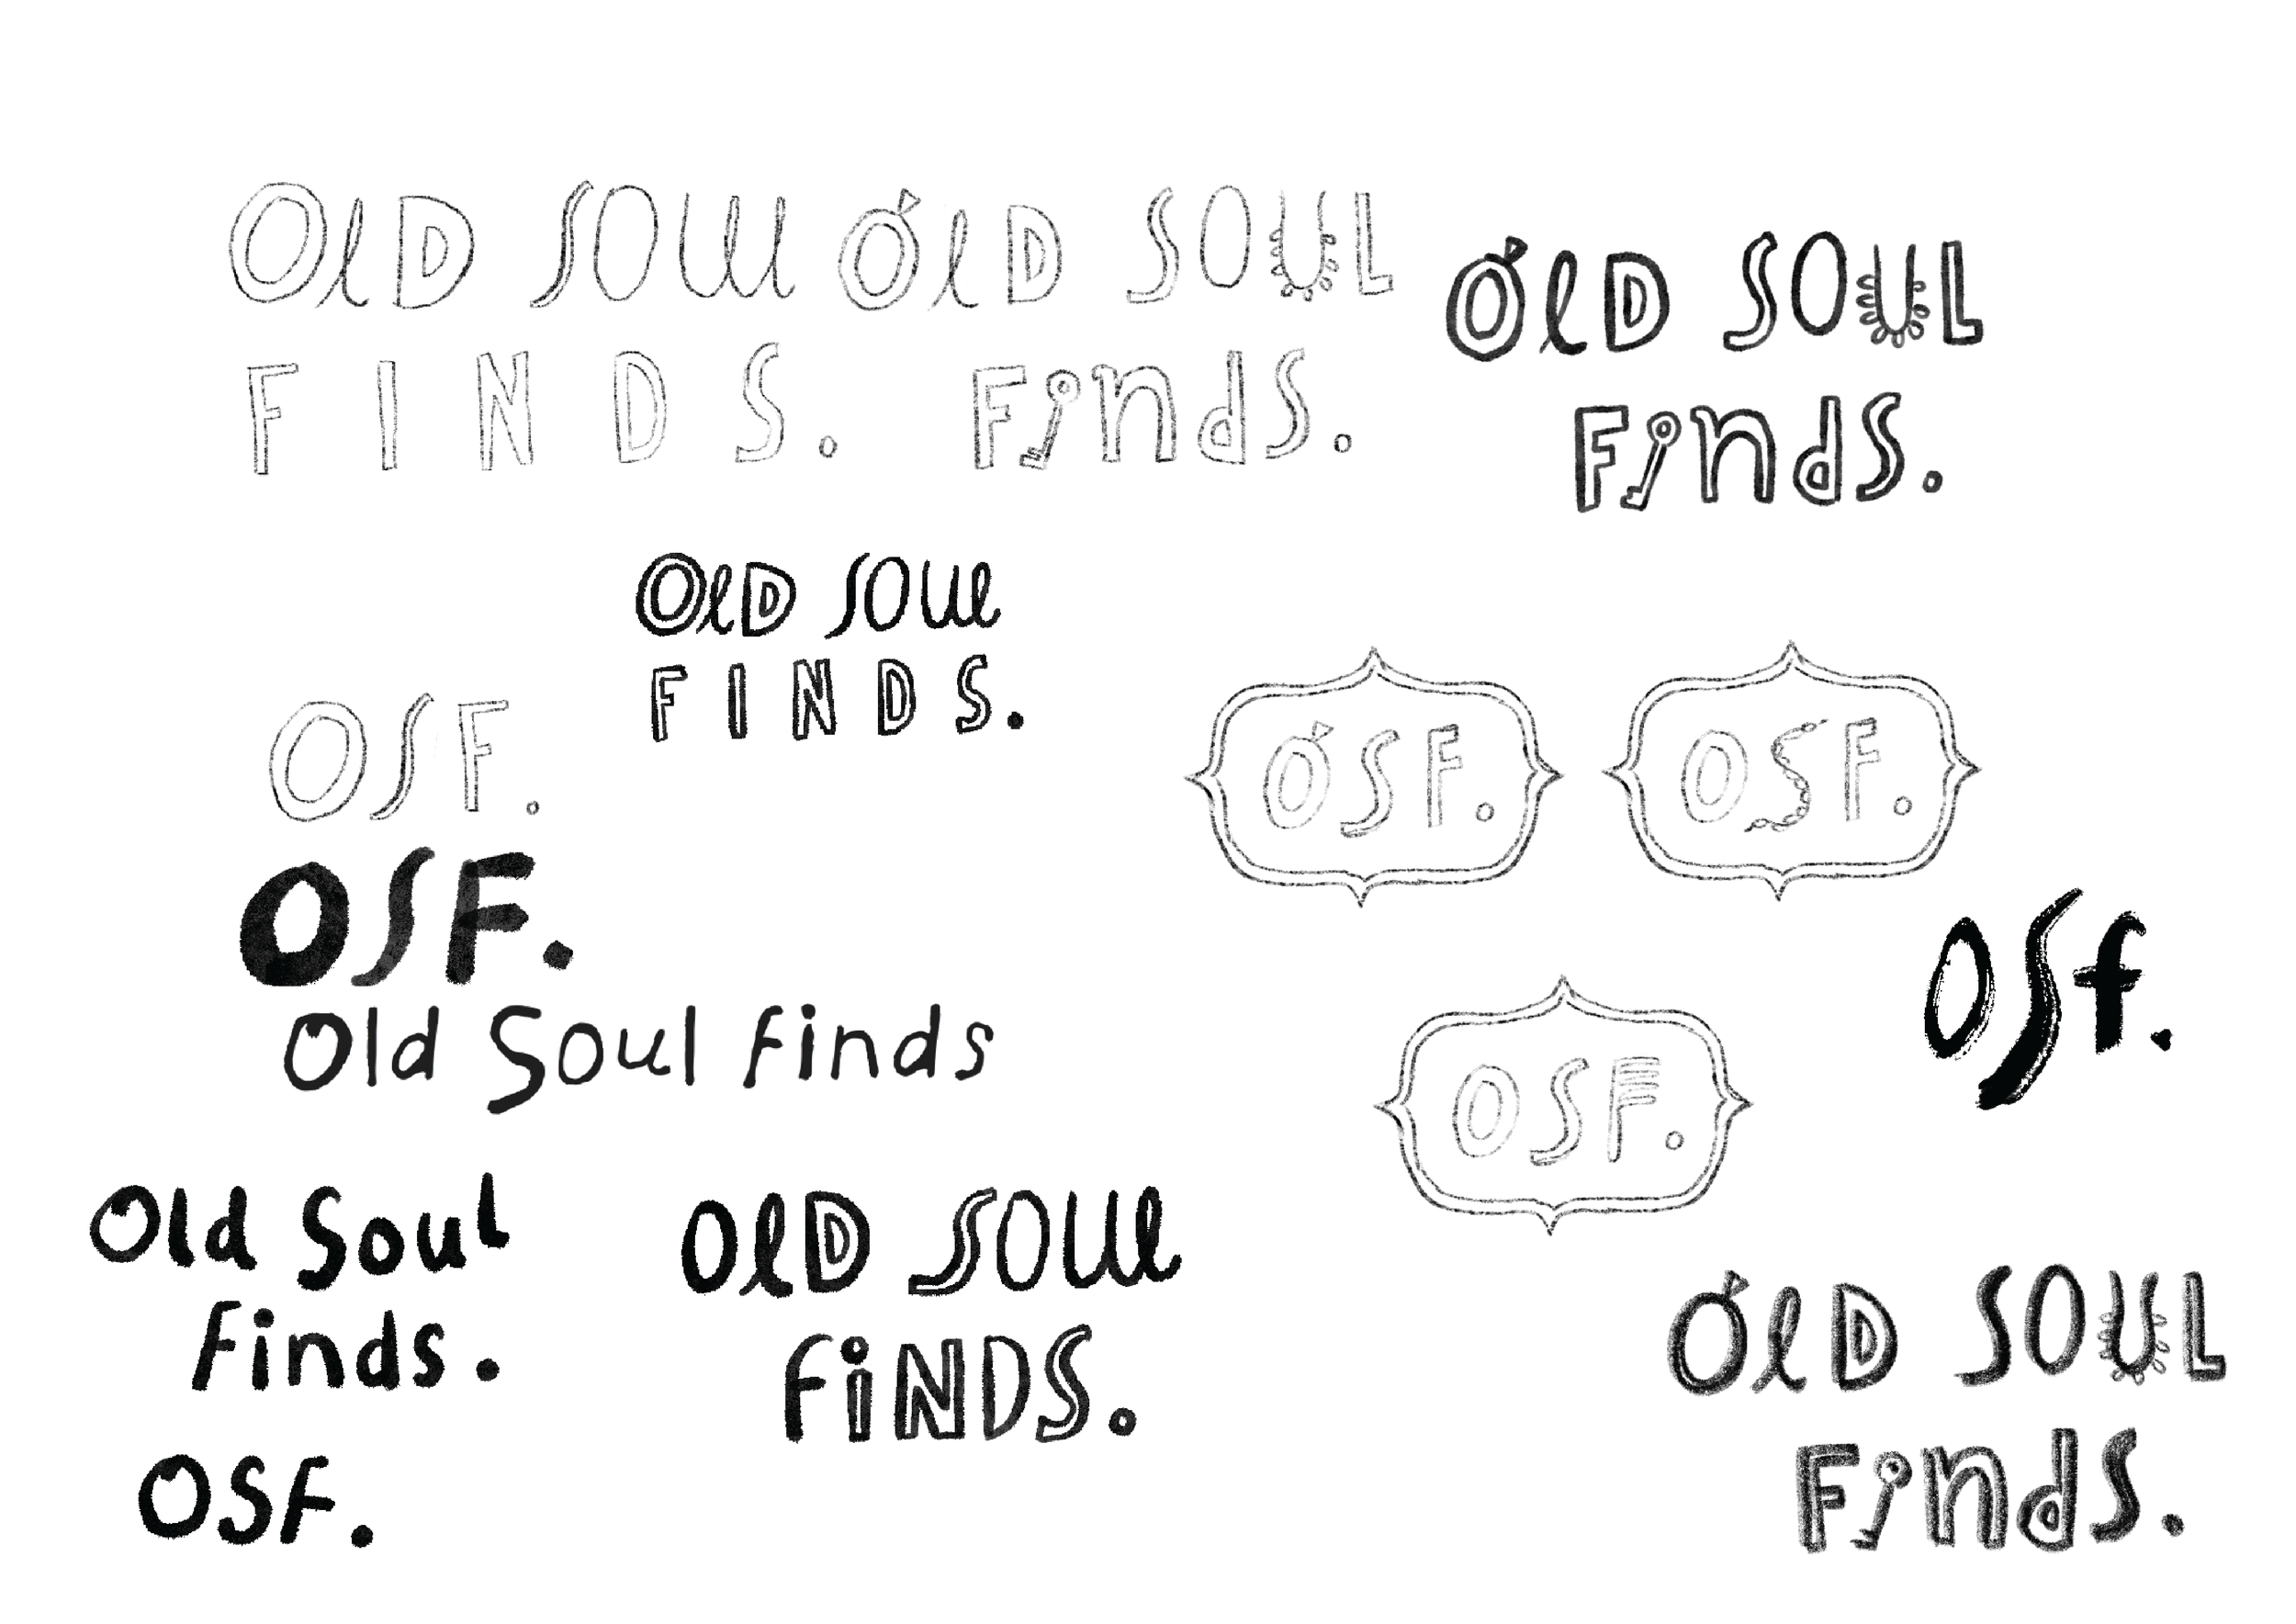 OlD SOUl
FINDS.
OlD SOUL
Finds.
OlD SOUL
Finds.
OlD SOUl
FINDS.
OSF.
OSF.
OSF.
OSF.
Old Soul finds
OSf.
OSF.
Old Soul
finds.
OlD SOUl
FiNDS.
OlD SOUL
Finds.
OSF.